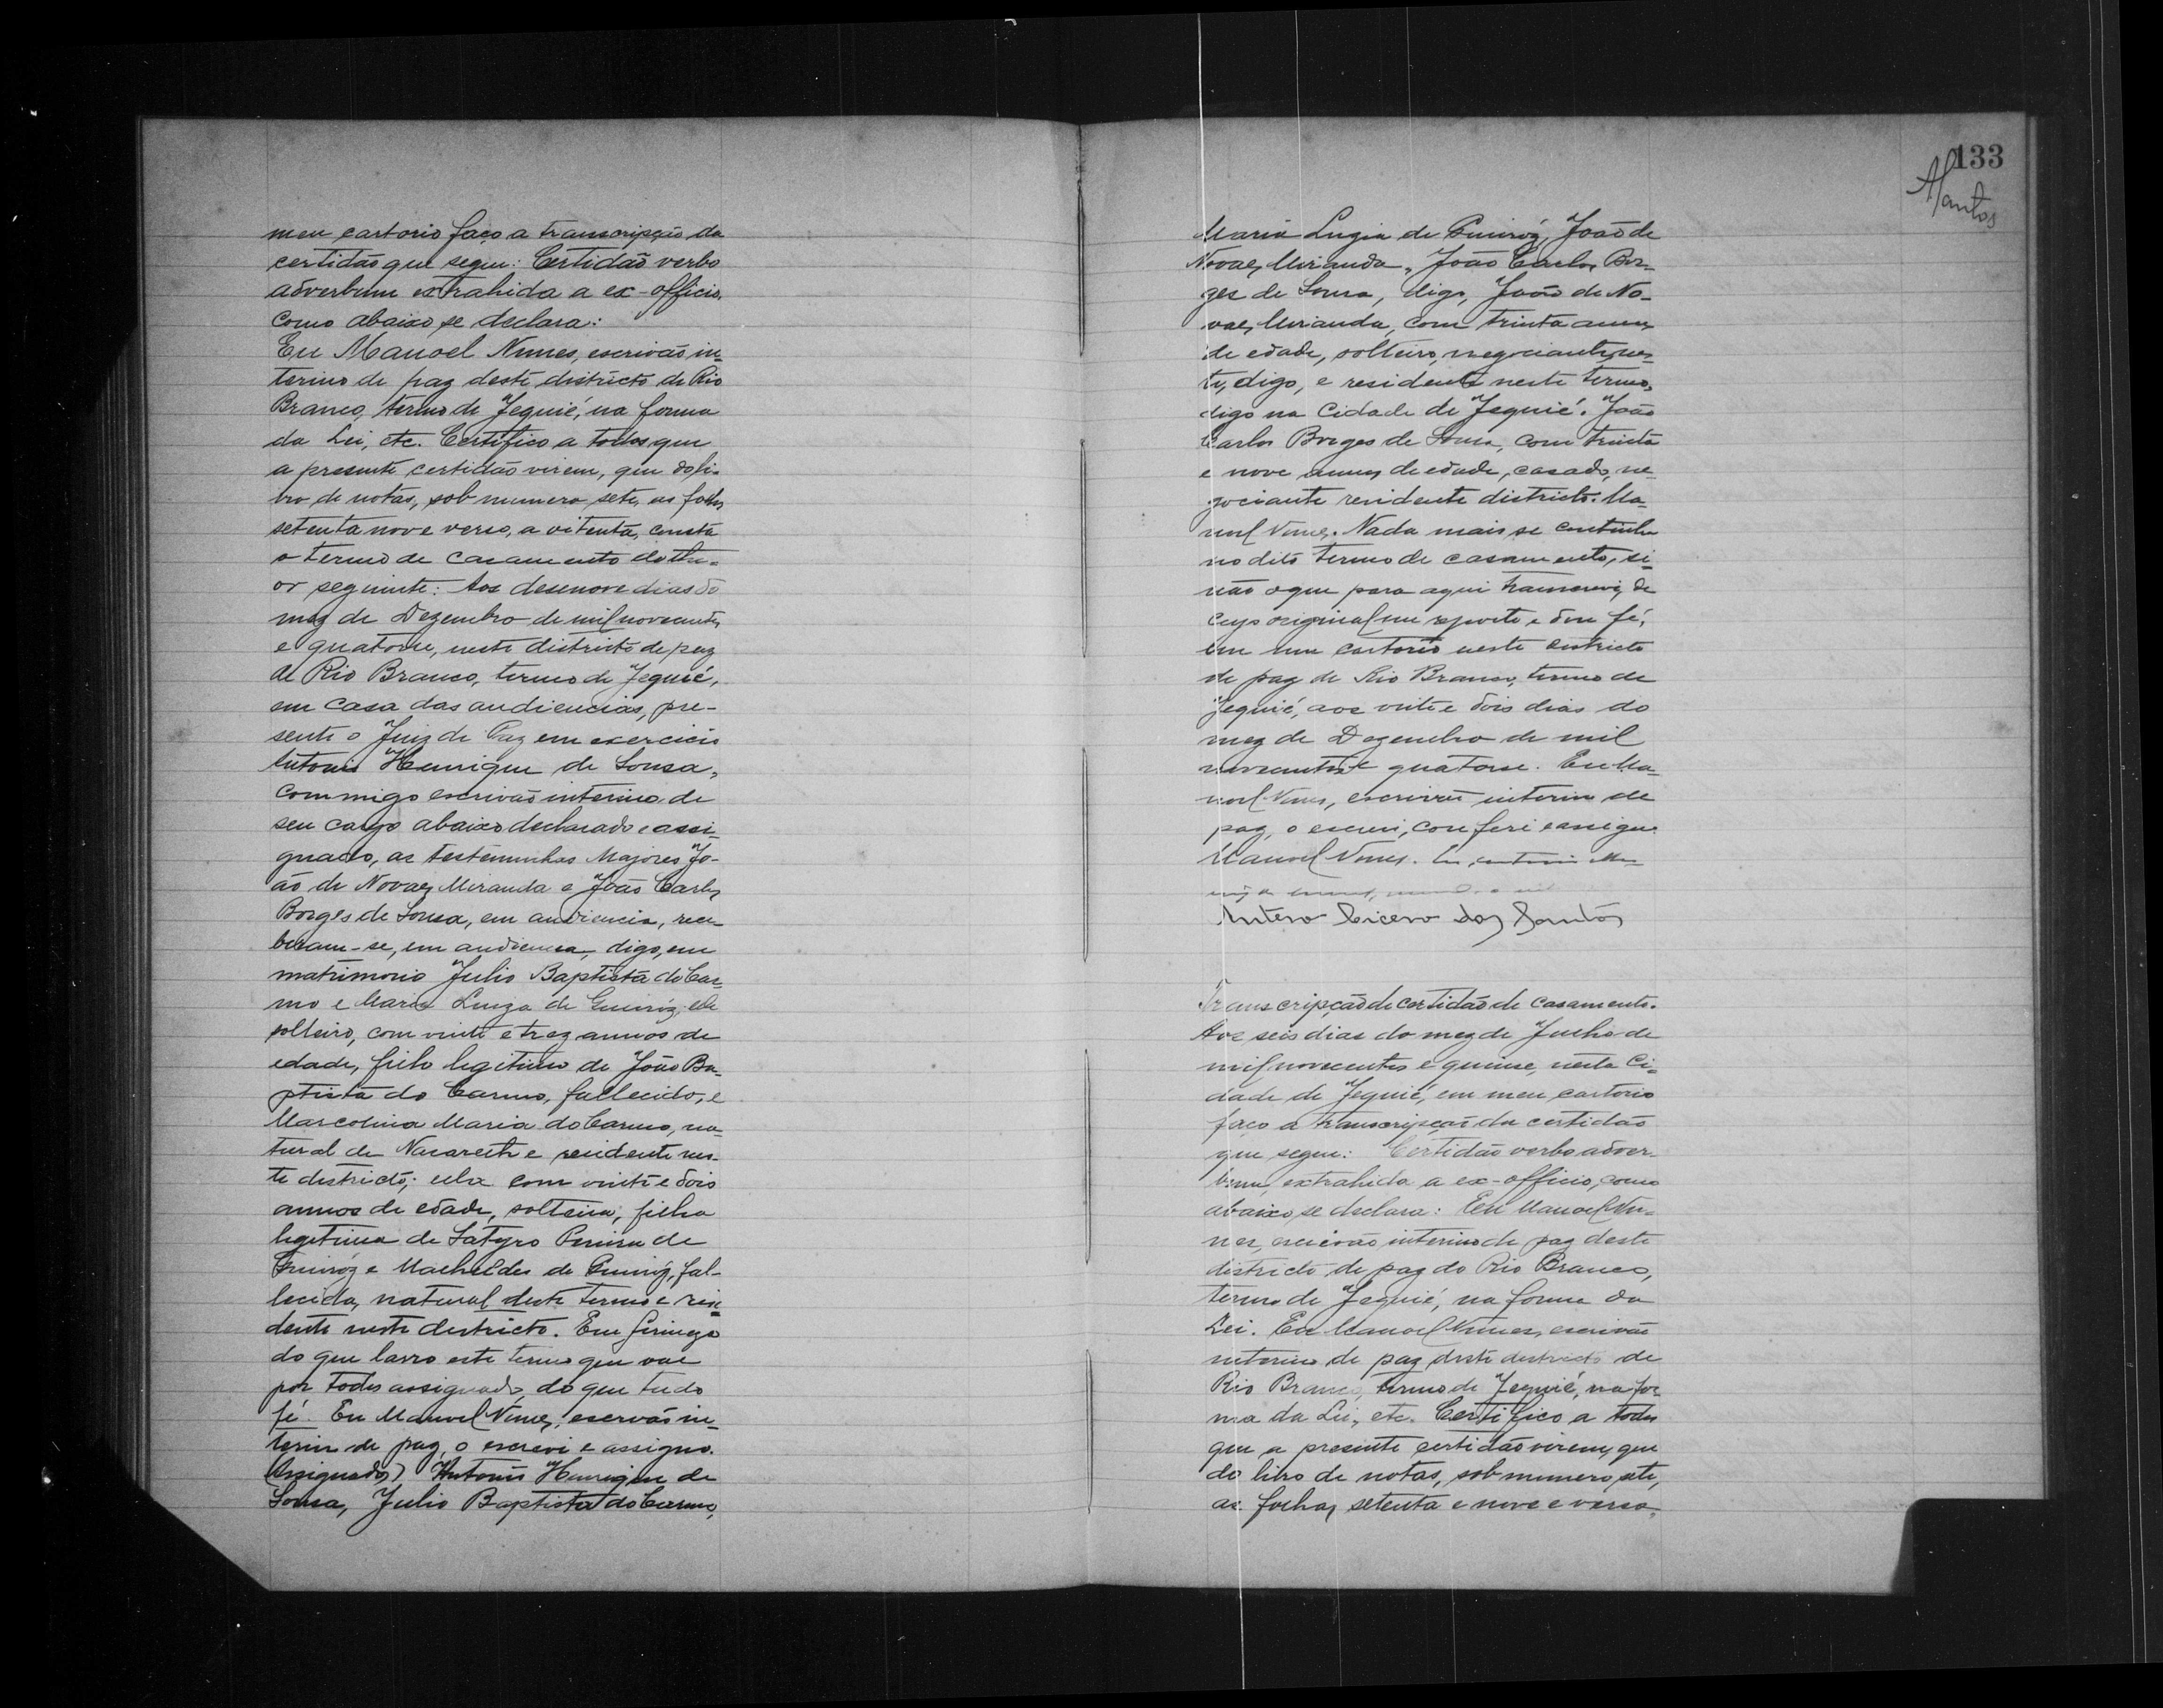 meu cartorio faço a transcripção da
certidão que segue: Certidão verbo
adverbum extrahida a ex-officio,
como abaixo se declara:
Eu Manoel Nunes, escrivão in-
terino de paz deste districto de Rio
Branco, termo de Jequié, na forma
da Lei, etc. Certifico a todos que
a presente certidão virem, que do li-
vro de notas, sob numero sete, as folhas
setenta nove verso, a oitenta, consta
o termo de casamento do the-
or seguinte: Aos desenove dias do
mez de Dezembro de mil novecentos
e quatorse, neste districto de paz
de Rio Branco, termo de Jequié,
em casa das audiencias, pre-
sente o Juiz de Paz em exercicio
Antonio Henrique de Sousa,
commigo escrivão interino de
seu cargo abaixo declarado e assi-
gnado, as testemunhas Majores Jo-
ão de Novaes Miranda e João Carlos
Borges de Sousa, em audiencia, rece-
beram-se, em audiencia, digo, em
matrimonio Julio Baptista do Car-
mo e Maria Luzia de Queiróz; elle
solteiro, com vinte e trez annos de
edade, filho legitimo de João Ba-
ptista do Carmo, fallecido, e
Marcolina Maria do Carmo, na-
tural de Nazareth e residente nes-
te districto; ella com vinte e dois
annos de edade, solteira, filha
legitima de Satyro Pereira de
Queiróz e Machildes de Queiróz, fal-
lecida, natural deste termo e resi-
dente neste districto. Em firmeza
do que lavro este termo que vae
por todos assignado, do que tudo
fé. Eu Manoel Nunes, escrivão in-
terino de paz, o escrevi e assigno.
(Assignados) Antonio Henrique de
Sousa, Julio Baptista do Carmo,
133
ASantos
Maria Luzia de Queiróz, João de
Novaes Miranda, João Carlos Bor-
ges de Sousa, digo, João de No-
vaes Miranda, com trinta annos
de edade, solteiro, negociante, nes-
te, digo, e residente neste termo,
digo na Cidade de Jequié. João
Carlos Borges de Sousa, com trinta
e nove annos de edade, casado, ne-
gociante residente districto. Ma-
noel Nunes. Nada mais se continha
no dito termo de casamento, si-
não o que para aqui transcrevi, de
cujo original me reporto e dou fé,
em meu cartorio neste districto
de paz de Rio Branco, termo de
Jequié, aos vinte e dois dias do
mez de Dezembro de mil
novecentos e quatorse. Eu Ma-
noel Nunes, escrivão interino de
paz, o escrevi, conferi e assigno.
Manoel Nunes. Eu,
Antero Cicero dos Santos
Transcripção de certidão de casamento.
Aos seis dias do mez de Junho de
mil novecentos e quinse, nesta Ci-
dade de Jequié, em meu cartorio
faço a transcripção da certidão
que segue: Certidão verbo adver-
bum, extrahida a ex-officio, como
abaixo se declara: Eu Manoel Nu-
nes, escrivão interino de paz deste
districto de paz do Rio Branco,
termo de Jequié, na forma da
Lei. Eu Manoel Nunes, escrivão
interino de paz deste districto de
Rio Branco, termo de Jequié, na for-
ma da Lei, etc. Certifico a todos
que a presente certidão virem, que
do livro de notas, sob numero sete,
as folhas setenta e nove e verso,